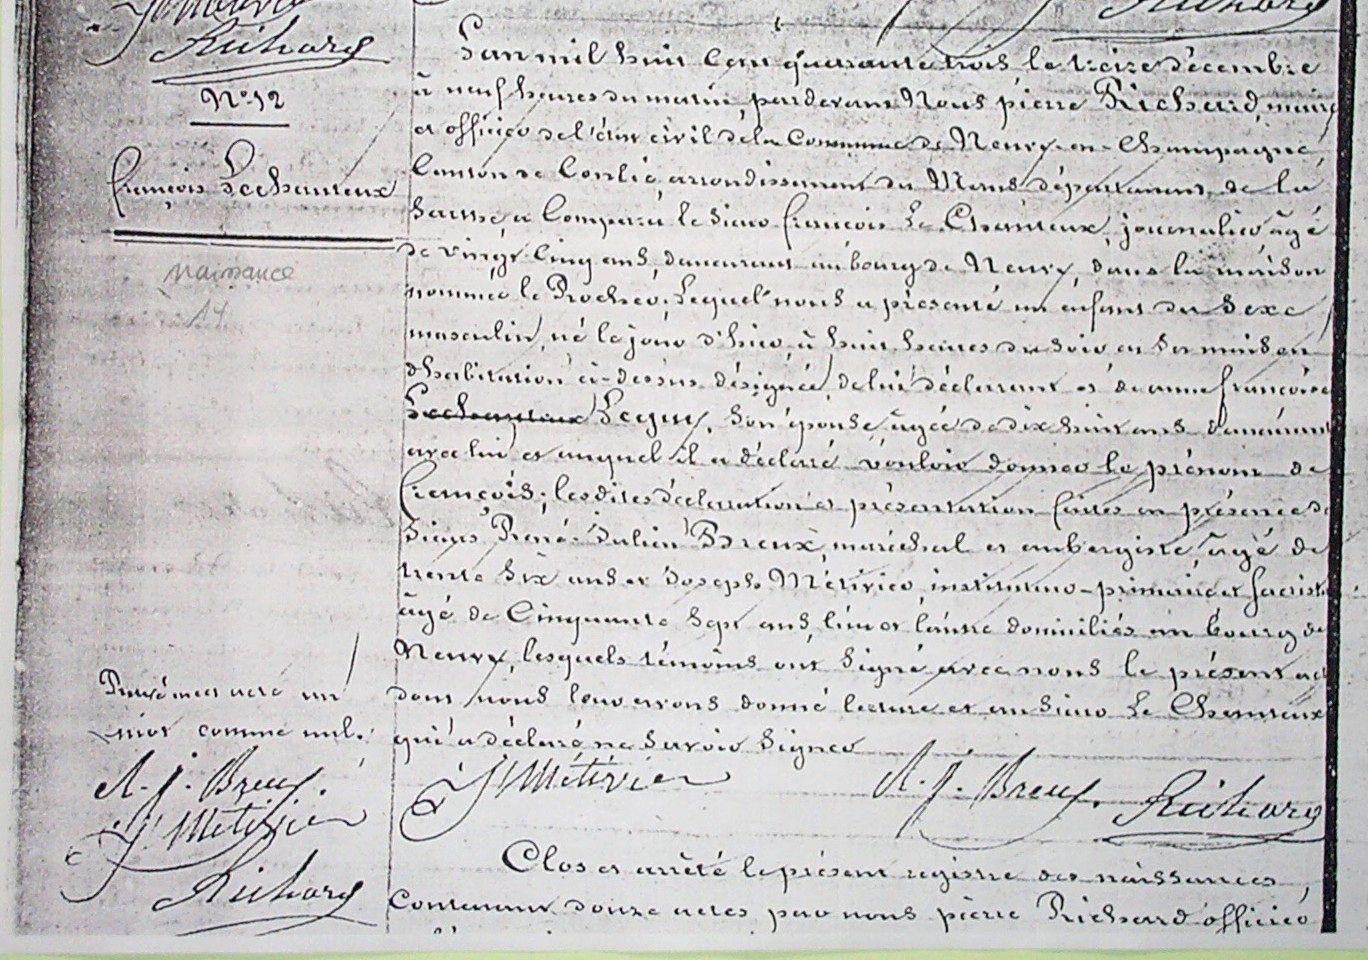 Richard
Richard
N° 12
François Lechanteux
naissance
14
L'an mil huit cent quarante trois le treize décembre
à neuf heures du matin pardevant Nous pierre Richard, maire
et officier de l'état civil de la Commune de Neuvy-en-Champagne,
Canton de Conlie, arrondissement du Mans département de la
Sarthe, a Comparu le Sieur françois Le Chanteux, journalier âgé
de vingt Cinq ans, demeurant au bourg de Neuvy, dans la maison
nommée le Rocher, Lequel nous a présenté un enfant du Sexe
masculin, né le jour d'hier, à huit heures du soir en Sa maison
d'habitation ci-dessus désignée, de lui déclarant et de anne françoise
Lechanteux Leguy, Son épouse, âgée de dix huit ans demeurant
avec lui, et auquel il a déclaré vouloir donner le prénom de
François; les dites déclaration et présentation faites en présence de
Sieurs René-Julien Breux, maréchal et aubergiste, âgé de
trente Six ans et Joseph Métivier, instituteur-primaire et sacriste
âgé de Cinquante Sept ans, l'un et l'autre domiciliés au bourg de
Neuvy, lesquels témoins ont Signé avec nous le présent acte
dont nous leur avons donné lecture et au Sieur Le Chanteux
qui a déclaré ne Savoir Signer
J Métivier R. J. Breux. Richard
Rayé un
mot comme nul.
R. J. Breux.
J Métivier
Richard
Clos et arrêté le présent registre des naissances
Contenant douze actes par nous pierre Richard officier